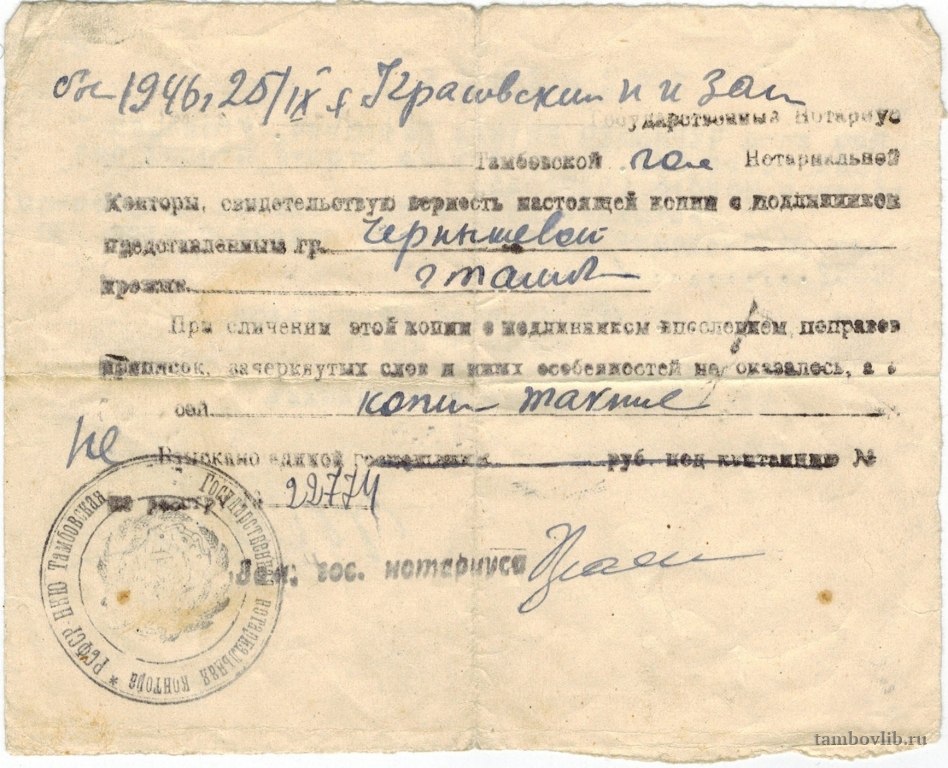 1946 г 25/IX я Красовский П И Зам
Государственный Нотариус
Тамбовской гос Нотариальной
Конторы, свидетельствую верность настоящей копии с подлинником
представленным гр. Чернышевой
прожив. г Тамбов
При сличении этой копии с подлинником поправок
приписок, зачеркнутых слов и иных особенностей не оказалось, а в
копии таковые
Не Взыскано единой руб. под квитанцию №
по реестру № 22774
Зам. гос. нотариуса
РСФСР НКЮ Тамбовская Государственная нотариальная контора *
tambovlib.ru